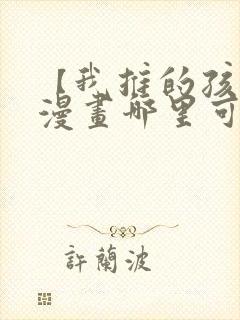 【我推的孩
漫畫哪里可
許蘭波